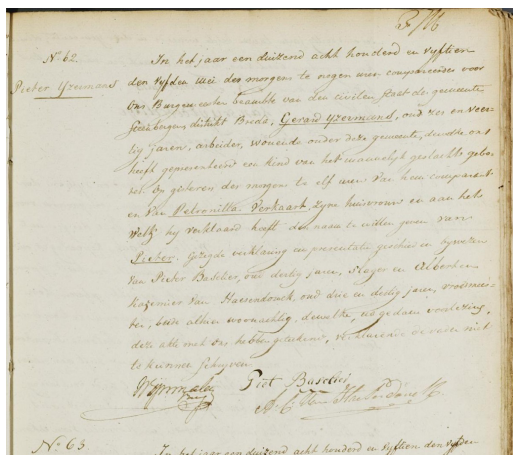 No. 62
Pieter Yzermans
In het jaar een duizend acht honderd en vyftien
den vyfden Mei des morgens te negen uren compareerden voor
Ons Burgemeester beambte van den civilen staat de gemeente
Steenbergen, distrikt Breda, Gerard Yzermans, oud zes en veer-
tig jaren, arbeider, wonende onder deze gemeente, dewelke ons
heeft gepresenteerd een kind van het mannelyk geslacht gebo-
ren op gisteren des morgens te elf uren van hem comparant
en van Petronilla Verkaart, zyne huisvrouw en aan het
welk hy verklaard heeft den naam te willen geven van
Pieter. Gezegde verklaring en presentatie geschied in bywezen
van Pieter Baselier, oud dertig jaren, en Albertus
Kazemier van Haesendonck, oud drie en dertig jaren,
beide alhier woonachtig, dewelke, na gedane voorlezing,
deze akte met ons hebben getekend, verklarende de vader niet
te kunnen schryven
Piet Baselier
No. 63
In het jaar een duizend acht honderd en vyftien den vyfden